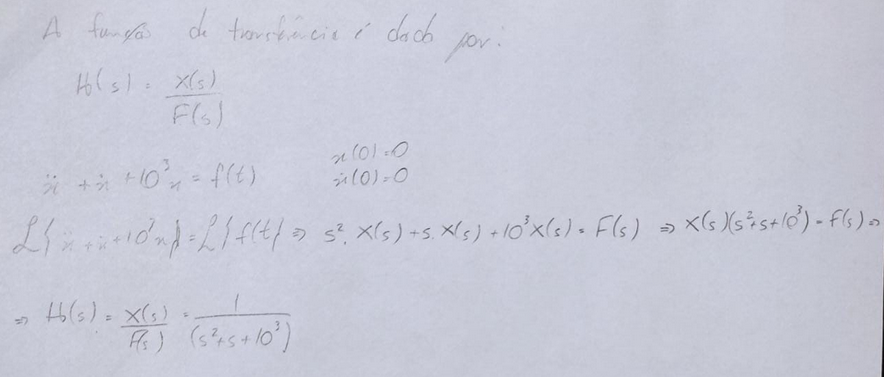 A função de transferência é dada por:
H(s) = X(s)/F(s)
ẍ + ẋ + 10³x = f(t)
x(0)=0
ẋ(0)=0
L{ẍ + ẋ + 10³x} = L{f(t)} ⇒ s². X(s) + s. X(s) + 10³X(s) = F(s) ⇒ X(s)(s²+s+10³) = F(s) ⇒
⇒ H(s) = X(s)/F(s) = 1/(s²+s+10³)